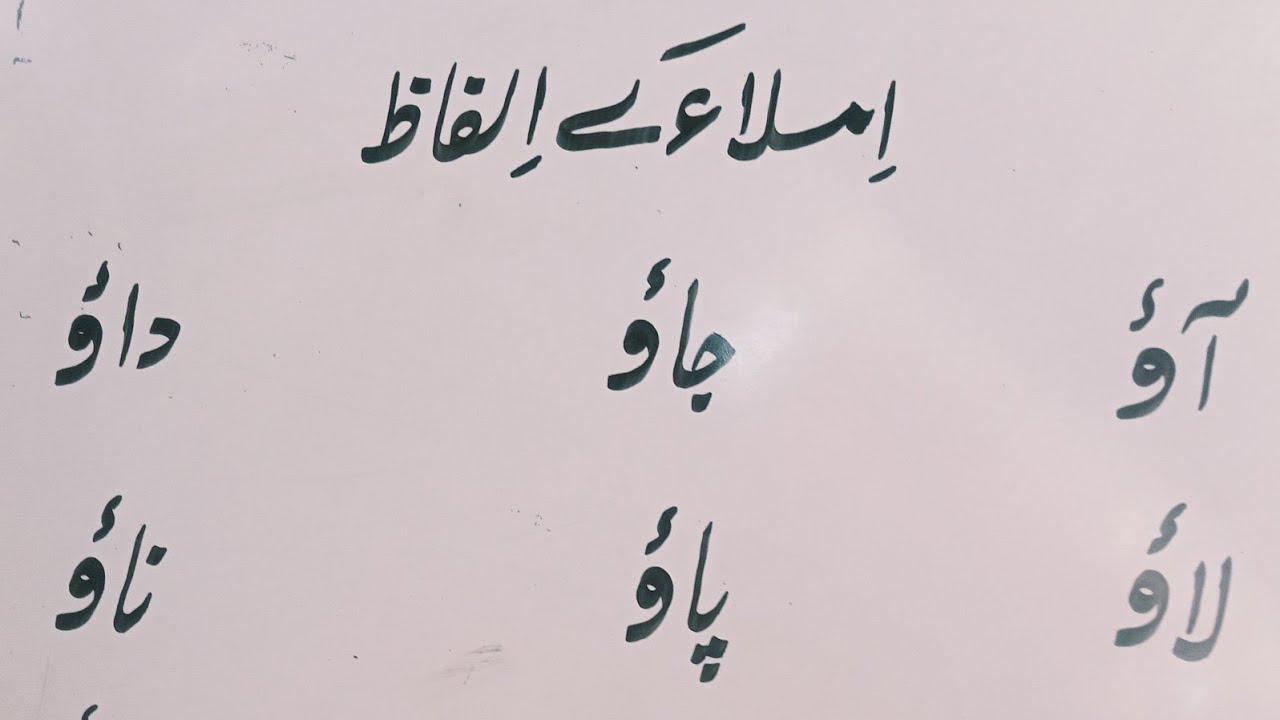 اِملاء کے اِلفاظ
آؤ جاؤ داؤ
لاؤ پاؤ ناؤ